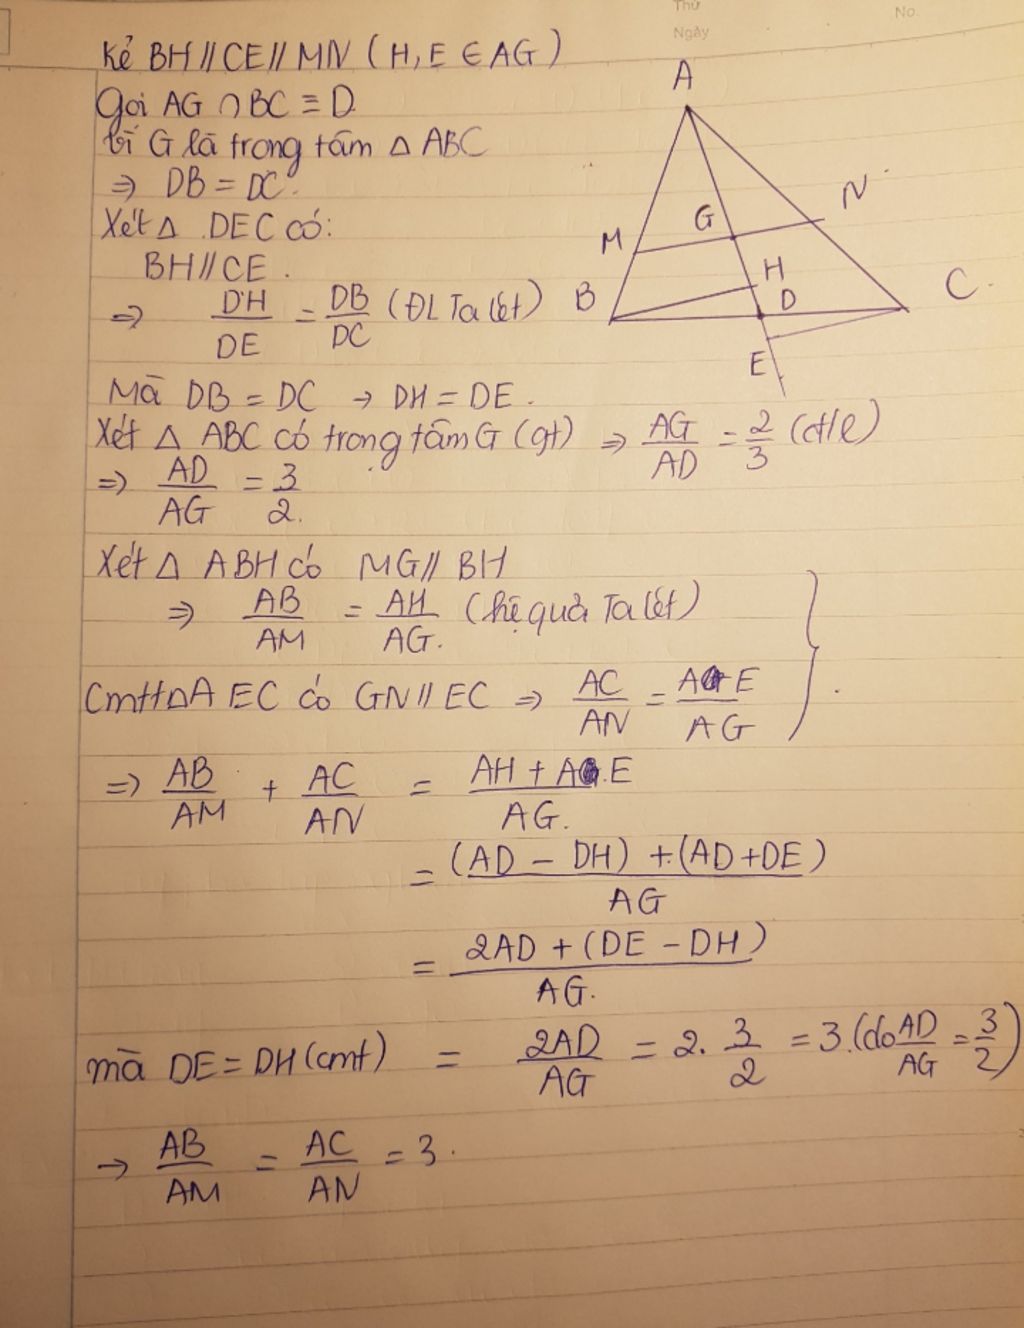 Thứ
No.
Ngày
Kẻ BH // CE // MN ( H, E ∈ AG )
Gọi AG ∩ BC ≡ D
Vì G là trọng tâm Δ ABC
⇒ DB = DC.
Xét Δ DEC có:
BH // CE.
⇒ DH/DE = DB/DC (ĐL Ta lét)
Mà DB = DC → DH = DE.
Xét Δ ABC có trọng tâm G (gt) ⇒ AG/AD = 2/3 (đ/l)
⇒ AD/AG = 3/2.
Xét Δ ABH có MG // BH
⇒ AB/AM = AH/AG. (hệ quả Ta lét)
Cmtt Δ AEC có GN // EC ⇒ AC/AN = AE/AG
⇒ AB/AM + AC/AN = AH + AE/AG.
= (AD - DH) + (AD + DE)/AG
= 2AD + (DE - DH)/AG.
mà DE = DH (cmt) = 2AD/AG = 2. 3/2 = 3. (do AD/AG = 3/2)
→ AB/AM = AC/AN = 3.
A
M
G
N
B
H
D
C
E